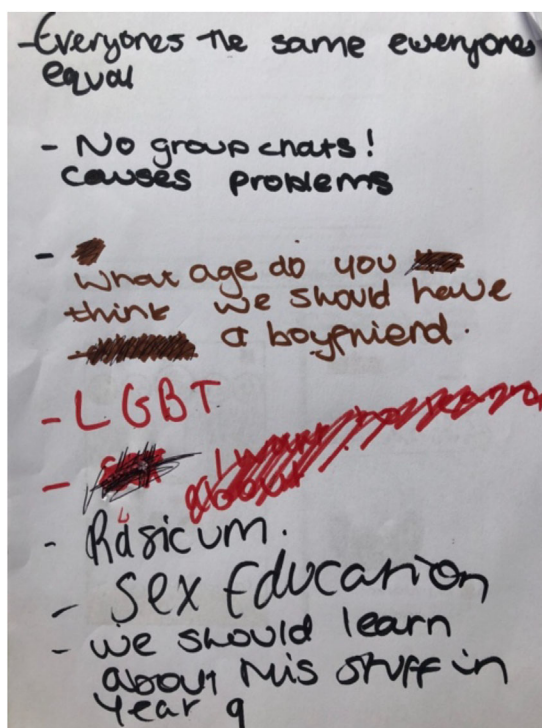 -Everyones the same eweryones
equal
- No group chats!
causes problems
-
What age do you
think we should have
a boyfriend.
- LGBT
-
- Rasicum.
- Sex Education
- we should learn
about this stuff in
Year 9